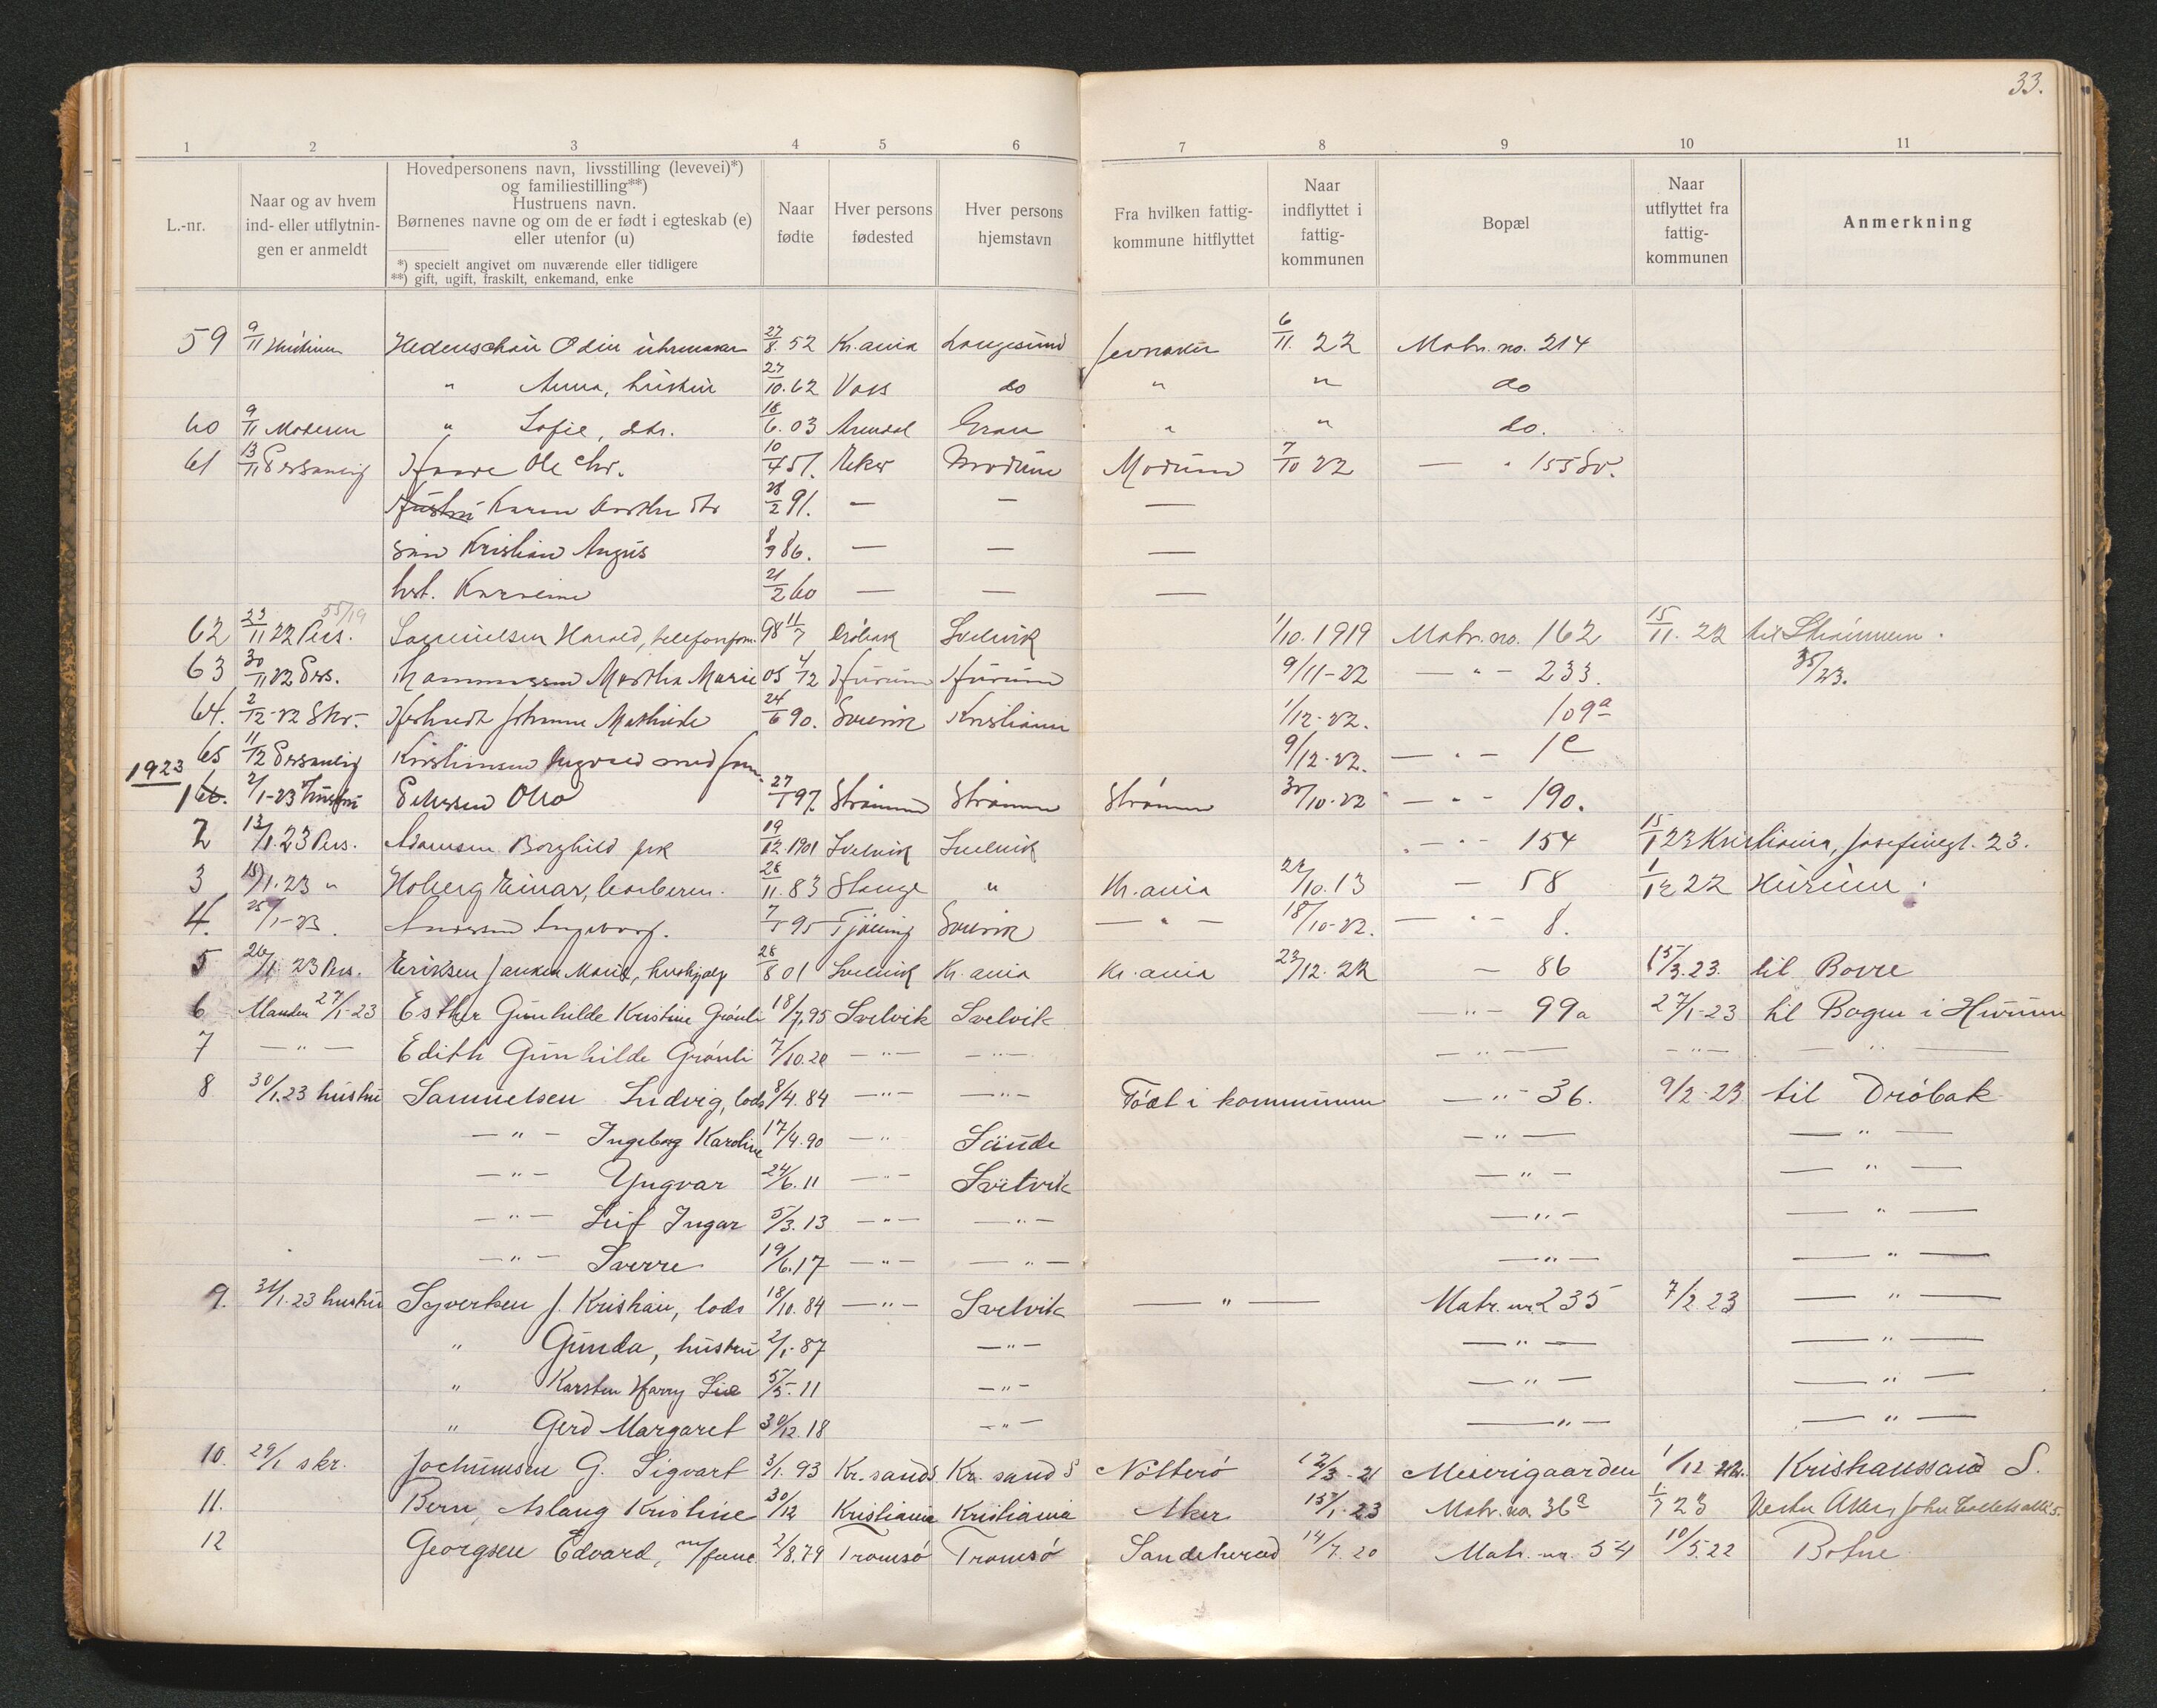 33.
1 2 3 4 5 6 7 8 9 10 11
L.-nr.
Naar og av hvem ind- eller utflytningen er anmeldt
Hovedpersonens navn, livsstilling (levevei)*)
og familiestilling**)
Hustruens navn.
Børnenes navne og om de er født i egteskab (e)
eller utenfor (u)
*) specielt angivet om nuværende eller tidligere
**) gift, ugift, fraskilt, enkemand, enke
Naar fødte
Hver persons fødested
Hver persons hjemstavn
Fra hvilken fattigkommune hitflyttet
Naar indflyttet i fattigkommunen
Bopæl
Naar utflyttet fra fattigkommunen
Anmerkning
59 9/11 Odin 27/8 52 Kr.ania Langesund Jevnaker 6/11. 22 Matr. no. 214
" Anna, hustru 27/10. 62 Voss do " " do
60 9/11 Moderen " Sofie, dtr. 18/6. 03 Arendal Gran " " do.
61 13/11 Personlig Haare Ole Chr. 10/4 51. Eker Modum Modum 7/10 22 — " 155
Hustru Karen dtr 28/2 91. — — —
søn Kristian 8/9 86. — — —
hst. 21/2 60 — — —
55/19
62 23/11 22 Pers. Samuelsen Harald, 98 11/7 Drøbak Svelvik 1/10. 1919 Matr. no. 162 15/11. 22 til Strømmen.
63 30/11 22 Pers. Martha Marie 05 4/12 Hurum Hurum 9/11-22 — " — 233. 35/23.
64. 2/12-22 Skr. Johanne Mathilde 24/6 90. Svelvik Kristiania 1/12-22. 109a
65 11/12 Personlig Kristiansen Ingvald med fam. 9/12-22. — " — 1c
1923
1 66. 2/1-23 hustru Pettersen Otto 27/1 97. Strømmen Strømmen Strømmen 30/10-22 — " — 190.
2 13/1. 23 Pers. Adamsen Borghild frk 19/12. 1901 Svelvik Svelvik — " — 154 15/1 23 Kristiania, Josefinegt. 23.
3 15/1. 23 " Hoberg Einar, barberer. 28/11. 83 Stange " Kr.ania 22/10. 13 — 58 1/12 22 Hurum.
4. 25/1-23. Andersen Ingeborg. 7/1 95 Tjølling Svelvik — " — 18/10-22. — " — 8.
5 26/1 23 Pers. Eriksen Marie, hushjælp 28/8 01 Svelvik Kr.ania Kr.ania 23/12. 22 — 86 15/3. 23. til Borre
6 Manden 27/1-23 Esther Gunhilde Kristine Grønli 18/7. 95 Svelvik Svelvik — " — 99a 27/1-23 til Bogen i Hurum
7 — " — Edith Gunhilde Grønli 7/10. 20 — " — — " — — " — — " — — " —
8 30/1. 23 hustru Samuelsen Ludvig, lods 8/4. 84 — " — — " — Født i kommunen — " — 36. 9/2-23 til Drøbak
— " — Ingeborg Karoline 17/4. 90 — " Sande — " — — " —
— " — Yngvar 24/6. 11 — " — Svelvik — " — — " —
— " — Leif Ingar 5/3. 13 — " — — " — — " — — " —
— " — Sverre 19/6. 17 — " — — " — — " — — " —
9. 31/1. 23 hustru Syvertsen J. Kristian, lods 18/10. 84 — " — Svelvik — " — Matr. nr. 235 7/2. 23 — " —
" Gunda, hustru 2/1. 87 — " — — " — — " —
" Karsten Harry 5/5. 11 — " — — " — — " —
" Gerd Margaret 30/12. 18 — " — — " — — " —
10. 29/1 skr. Jochumsen G. Sigvart 3/1. 93 Kr.sand S. Kr.sand S Nøtterø 12/3-21 Meierigaarden 1/12-22. Kristianssand S.
11. Bern, Aslaug Kristine 30/12 Kristiania Kristiania Aker 15/1-23 Matr. no. 36a 1/7 23 Vestre Aker, John
12 Georgsen Edvard, m/fam. 2/8. 79 Tromsø Tromsø Sandeherred 14/7. 20 Matr. nr. 54 10/5. 22 Botne